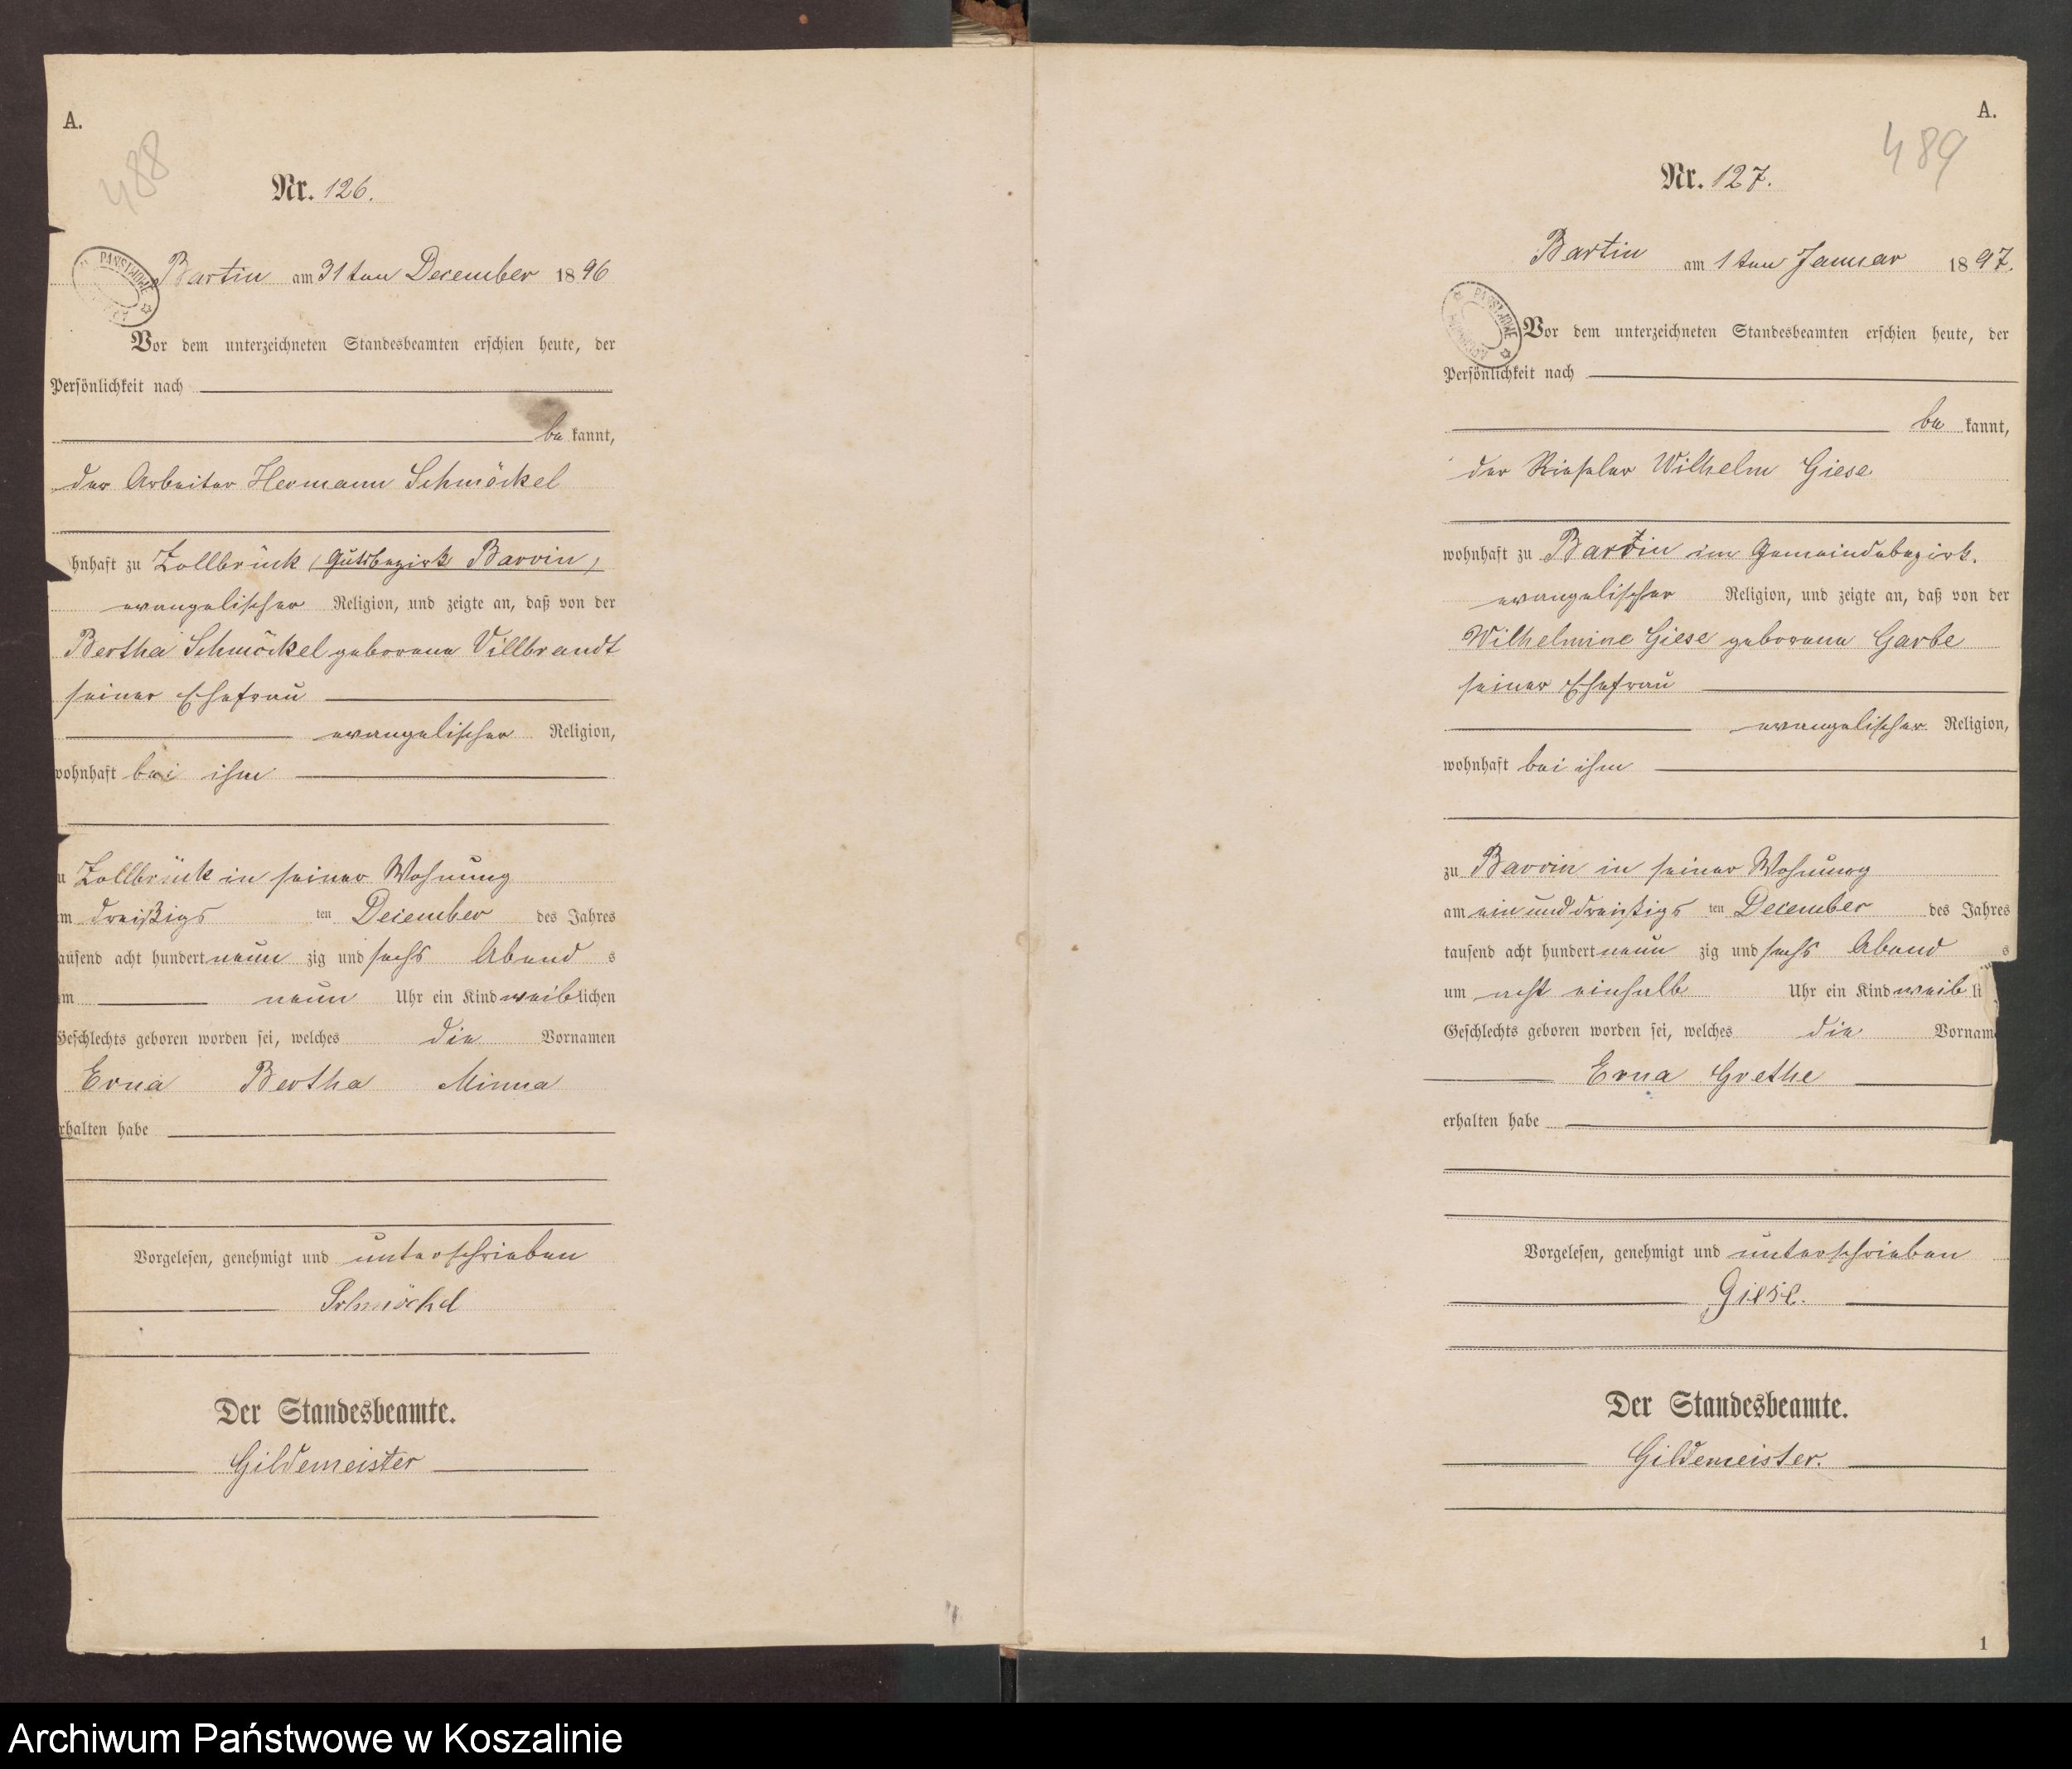 A.
488
Nr. 126.
Bartin am 31ten December 1896
PAŃSTWOWE
Vor dem unterzeichneten Standesbeamten erschien heute, der
Persönlichkeit nach
be kannt,
der Arbeiter Hermann Schmöckel
hnhaft zu Zollbrück (Gutsbezirk Barvin)
evangelischer Religion, und zeigte an, daß von der
Bertha Schmöckel geborene Villbrandt
seiner Ehefrau
evangelischer Religion,
wohnhaft bei ihm
u Zollbrück in seiner Wohnung
am dreißigs ten December des Jahres
tausend acht hundert neun zig und sechs Abend s
um neun Uhr ein Kind weiblichen
Geschlechts geboren worden sei, welches die Vornamen
Erna Bertha Minna
erhalten habe
Vorgelesen, genehmigt und unterschrieben
Schmöckel
Der Standesbeamte.
Gildemeister
A.
489
Nr. 127.
Bartin am 1ten Januar 1897.
PAŃSTWOWE
Vor dem unterzeichneten Standesbeamten erschien heute, der
Persönlichkeit nach
be kannt,
der Rieseler Wilhelm Giese
wohnhaft zu Bartin im Gemeindebezirk.
evangelischer Religion, und zeigte an, daß von der
Wilhelmine Giese geborene Garbe
seiner Ehefrau
evangelischer Religion,
wohnhaft bei ihm
zu Barvin in seiner Wohnung
am ein und dreißigs ten December des Jahres
tausend acht hundert neun zig und sechs Abend s
um acht einhalb Uhr ein Kind weib li
Geschlechts geboren worden sei, welches die Vornam
Erna Grethe
erhalten habe
Vorgelesen, genehmigt und unterschrieben
Giese.
Der Standesbeamte.
Gildemeister.
1
Archiwum Państwowe w Koszalinie